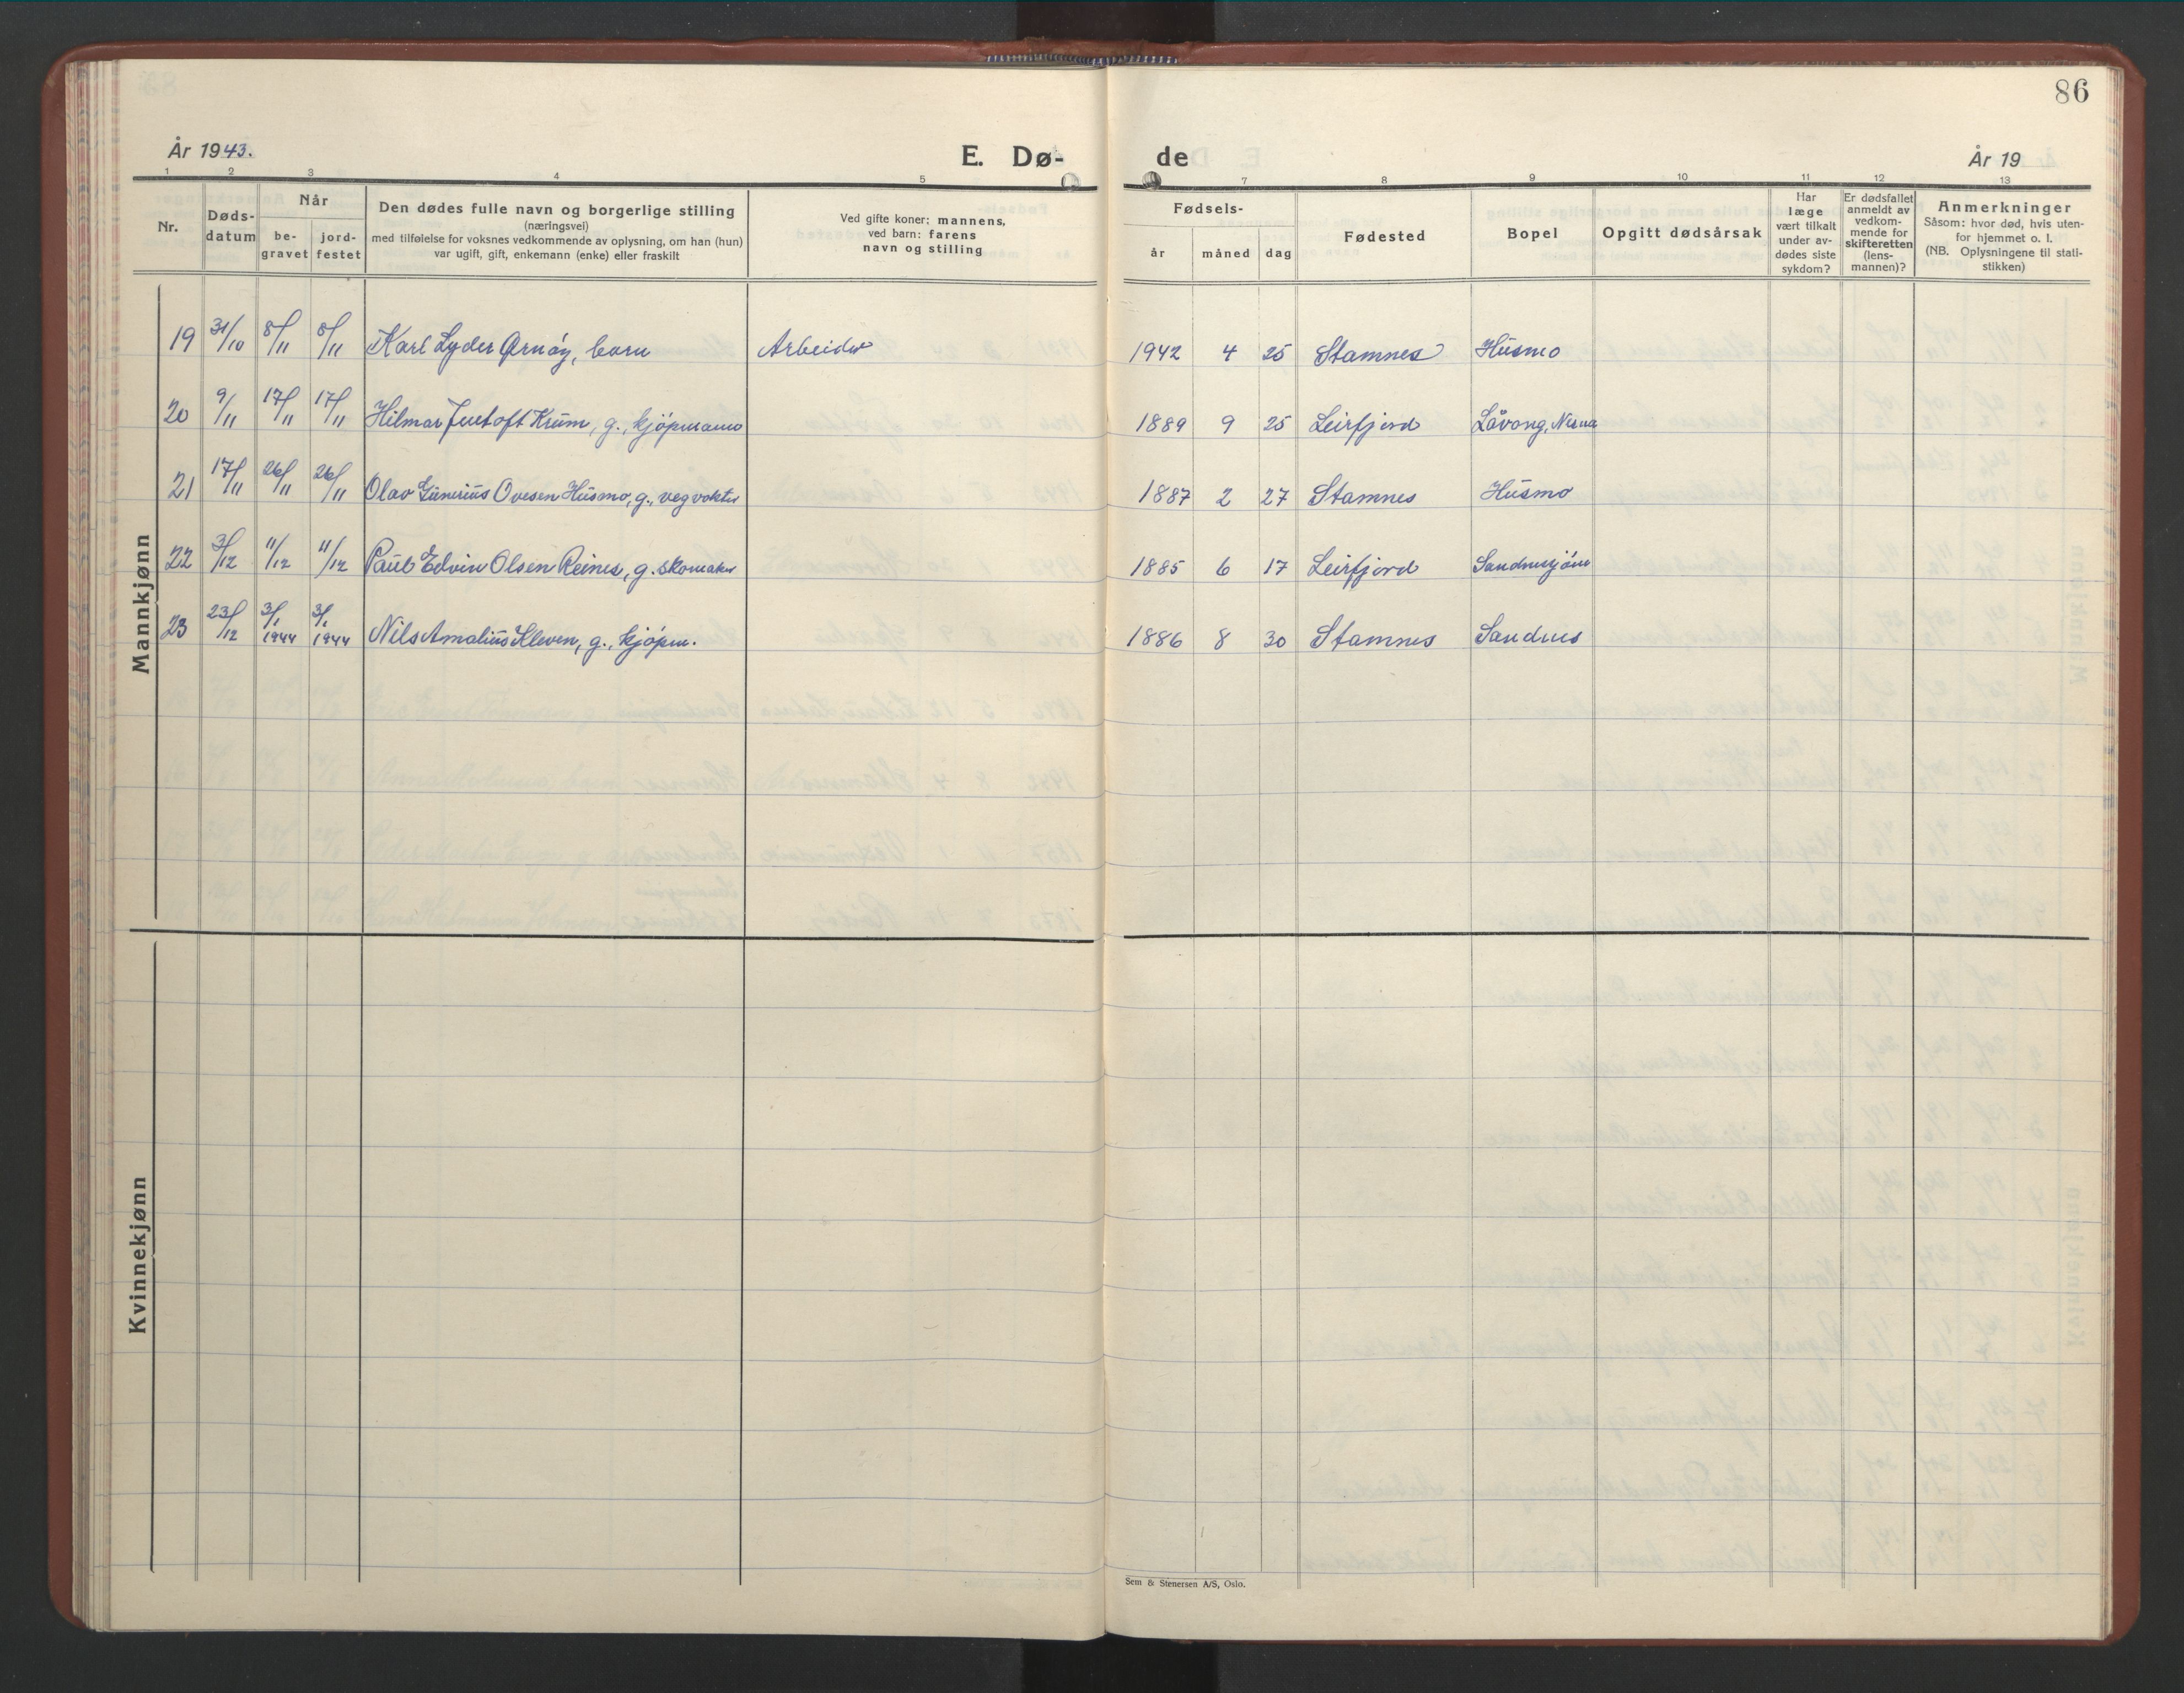 86
År 1943.
E. Dø-
de
År 19
1 2 3 4 5 7 8 9 10 11 12 13
Nr.
Døds-
datum
Når
be-
gravet
jord-
festet
Den dødes fulle navn og borgerlige stilling
(næringsvei)
med tilføielse for voksnes vedkommende av oplysning, om han (hun)
var ugift, gift, enkemann (enke) eller fraskilt
Ved gifte koner: mannens,
ved barn: farens
navn og stilling
Fødsels-
år måned dag
Fødested
Bopel
Opgitt dødsårsak
Har
læge
vært tilkalt
under av-
dødes siste
sykdom?
Er dødsfallet
anmeldt av
vedkom-
mende for
skifteretten
(lens-
mannen)?
Anmerkninger
Såsom: hvor død, hvis uten-
for hjemmet o. l.
(NB. Oplysningene til stati-
stikken)
Mannkjønn
19 31/10 8/11 8/11 Karl Lyder Ørnøy, barn Arbeider 1942 4 25 Stamnes Husmo
20 9/11 17/11 17/11 Hilmar Jentoft Krum, g., kjøpmann 1889 9 25 Leirfjord Låvong, Nesna
21 17/11 26/11 26/11 Olav Gunerius Ovesen Husmo, g., vegvokter 1887 2 27 Stamnes Husmo
22 3/12 11/12 11/12 Paul Edvin Olsen Reines, g. skomaker 1885 6 17 Leirfjord Sandnessjøen
23 23/12 3/1 1944 3/1 1944 Nils Amalius Kleven, g., kjøpm. 1886 8 30 Stamnes Sandnes
Kvinnekjønn
Sem & Stenersen A/S, Oslo.